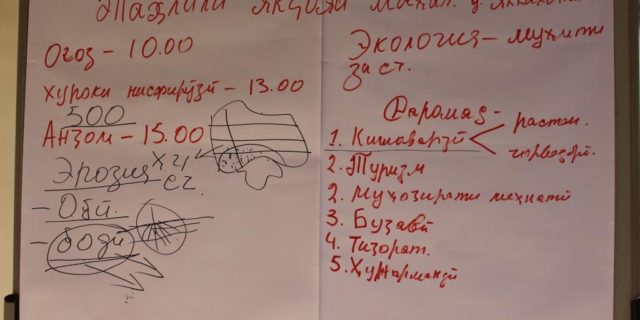 Таҳлили якҷояи маҳал. д.
Оғоз - 10.00
хӯроки нисфирӯзӣ - 13.00
500
Анҷом - 15.00
Эрозия
- Обӣ.
- бодӣ
Экология - муҳити
зист.
Даромад -
1. Кишаварзӣ
растан.
чорводорӣ.
2. Туризм
2. Муҳоҷирати меҳнатӣ
3. Буҷавӣ
4. Тиҷорат.
5. Ҳунармандӣ